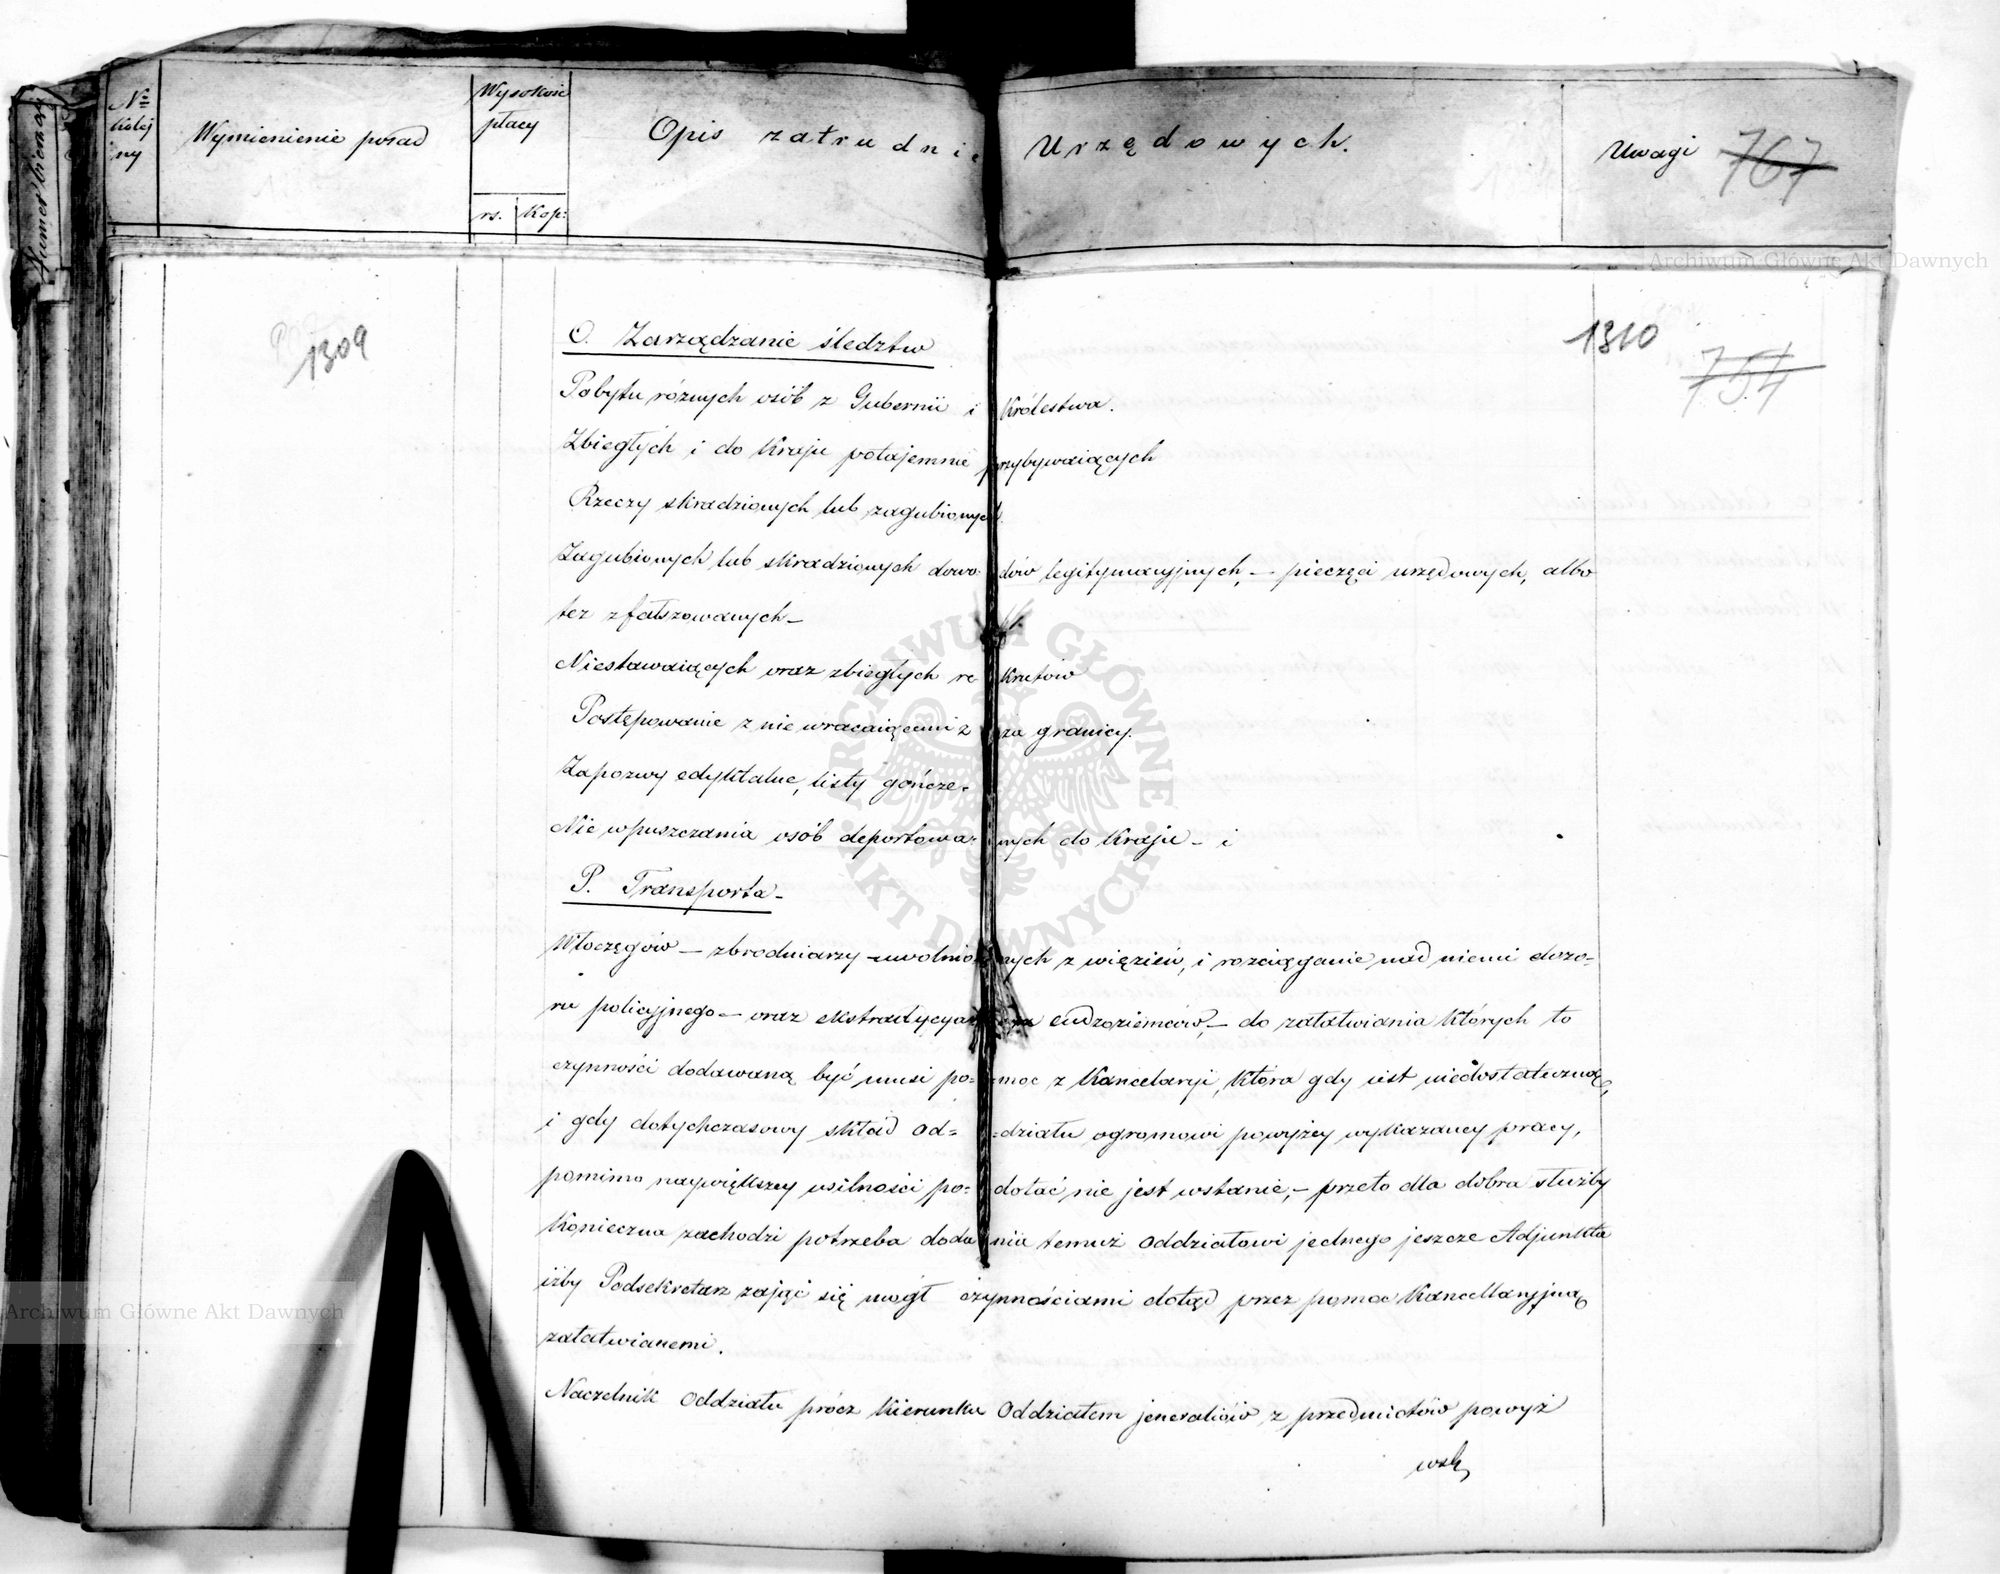 Numer bieżący
Nr kolejny
Wymienienie posad
Wysokość płacy
rs. Kop:
Opis zatrudnień Urzędowych.
Uwagi
767
1309
1310
754
O. Zarządzanie śledztw
Pobytu różnych osób z Gubernii i Królestwa.
Zbiegłych i do Kraju potajemnie przybywaiących
Rzeczy skradzionych lub zagubionych.
Zagubionych lub skradzionych dowodów legitymacyjnych, – pieczęci urzędowych, albo
też zfałszowanych –
Niestawaiących oraz zbiegłych rekrutów
Postępowanie z niewracaiącemi z za granicy.
Zapozwy edyktalne, listy gończe.
Nie wpuszczania osób deportowanych do Kraju – i
P. Transporta –
Włoczęgów – zbrodniarzy uwolnionych z więzień, i rozciąganie nad niemi dozo-
ru policyjnego – oraz ekstradycya cudzoziemców, – do załatwiania których to
czynności dodawaną być musi po- moc z Kancelaryi, która gdy iest niedostateczną,
i gdy dotychczasowy skład od= =działu ogromowi powyżey wykazaney pracy,
pomimo naywiększey usilności po= dołać nie jest wstanie, – przeto dla dobra służby
Konieczna zachodzi potrzeba dodania temuż Oddziałowi jednego jeszcze Adjunkta
iżby Podsekretarz zająć się mógł czynnościami dotąd przez pomoc Kancellaryjną
załatwianemi.
Naczelnik Oddziału prócz kierunku Oddziałem jeneraliów z przedmiotów powyż
wsk,
Archiwum Główne Akt Dawnych
Archiwum Główne Akt Dawnych
ARCHIWUM GŁÓWNE AKT DAWNYCH